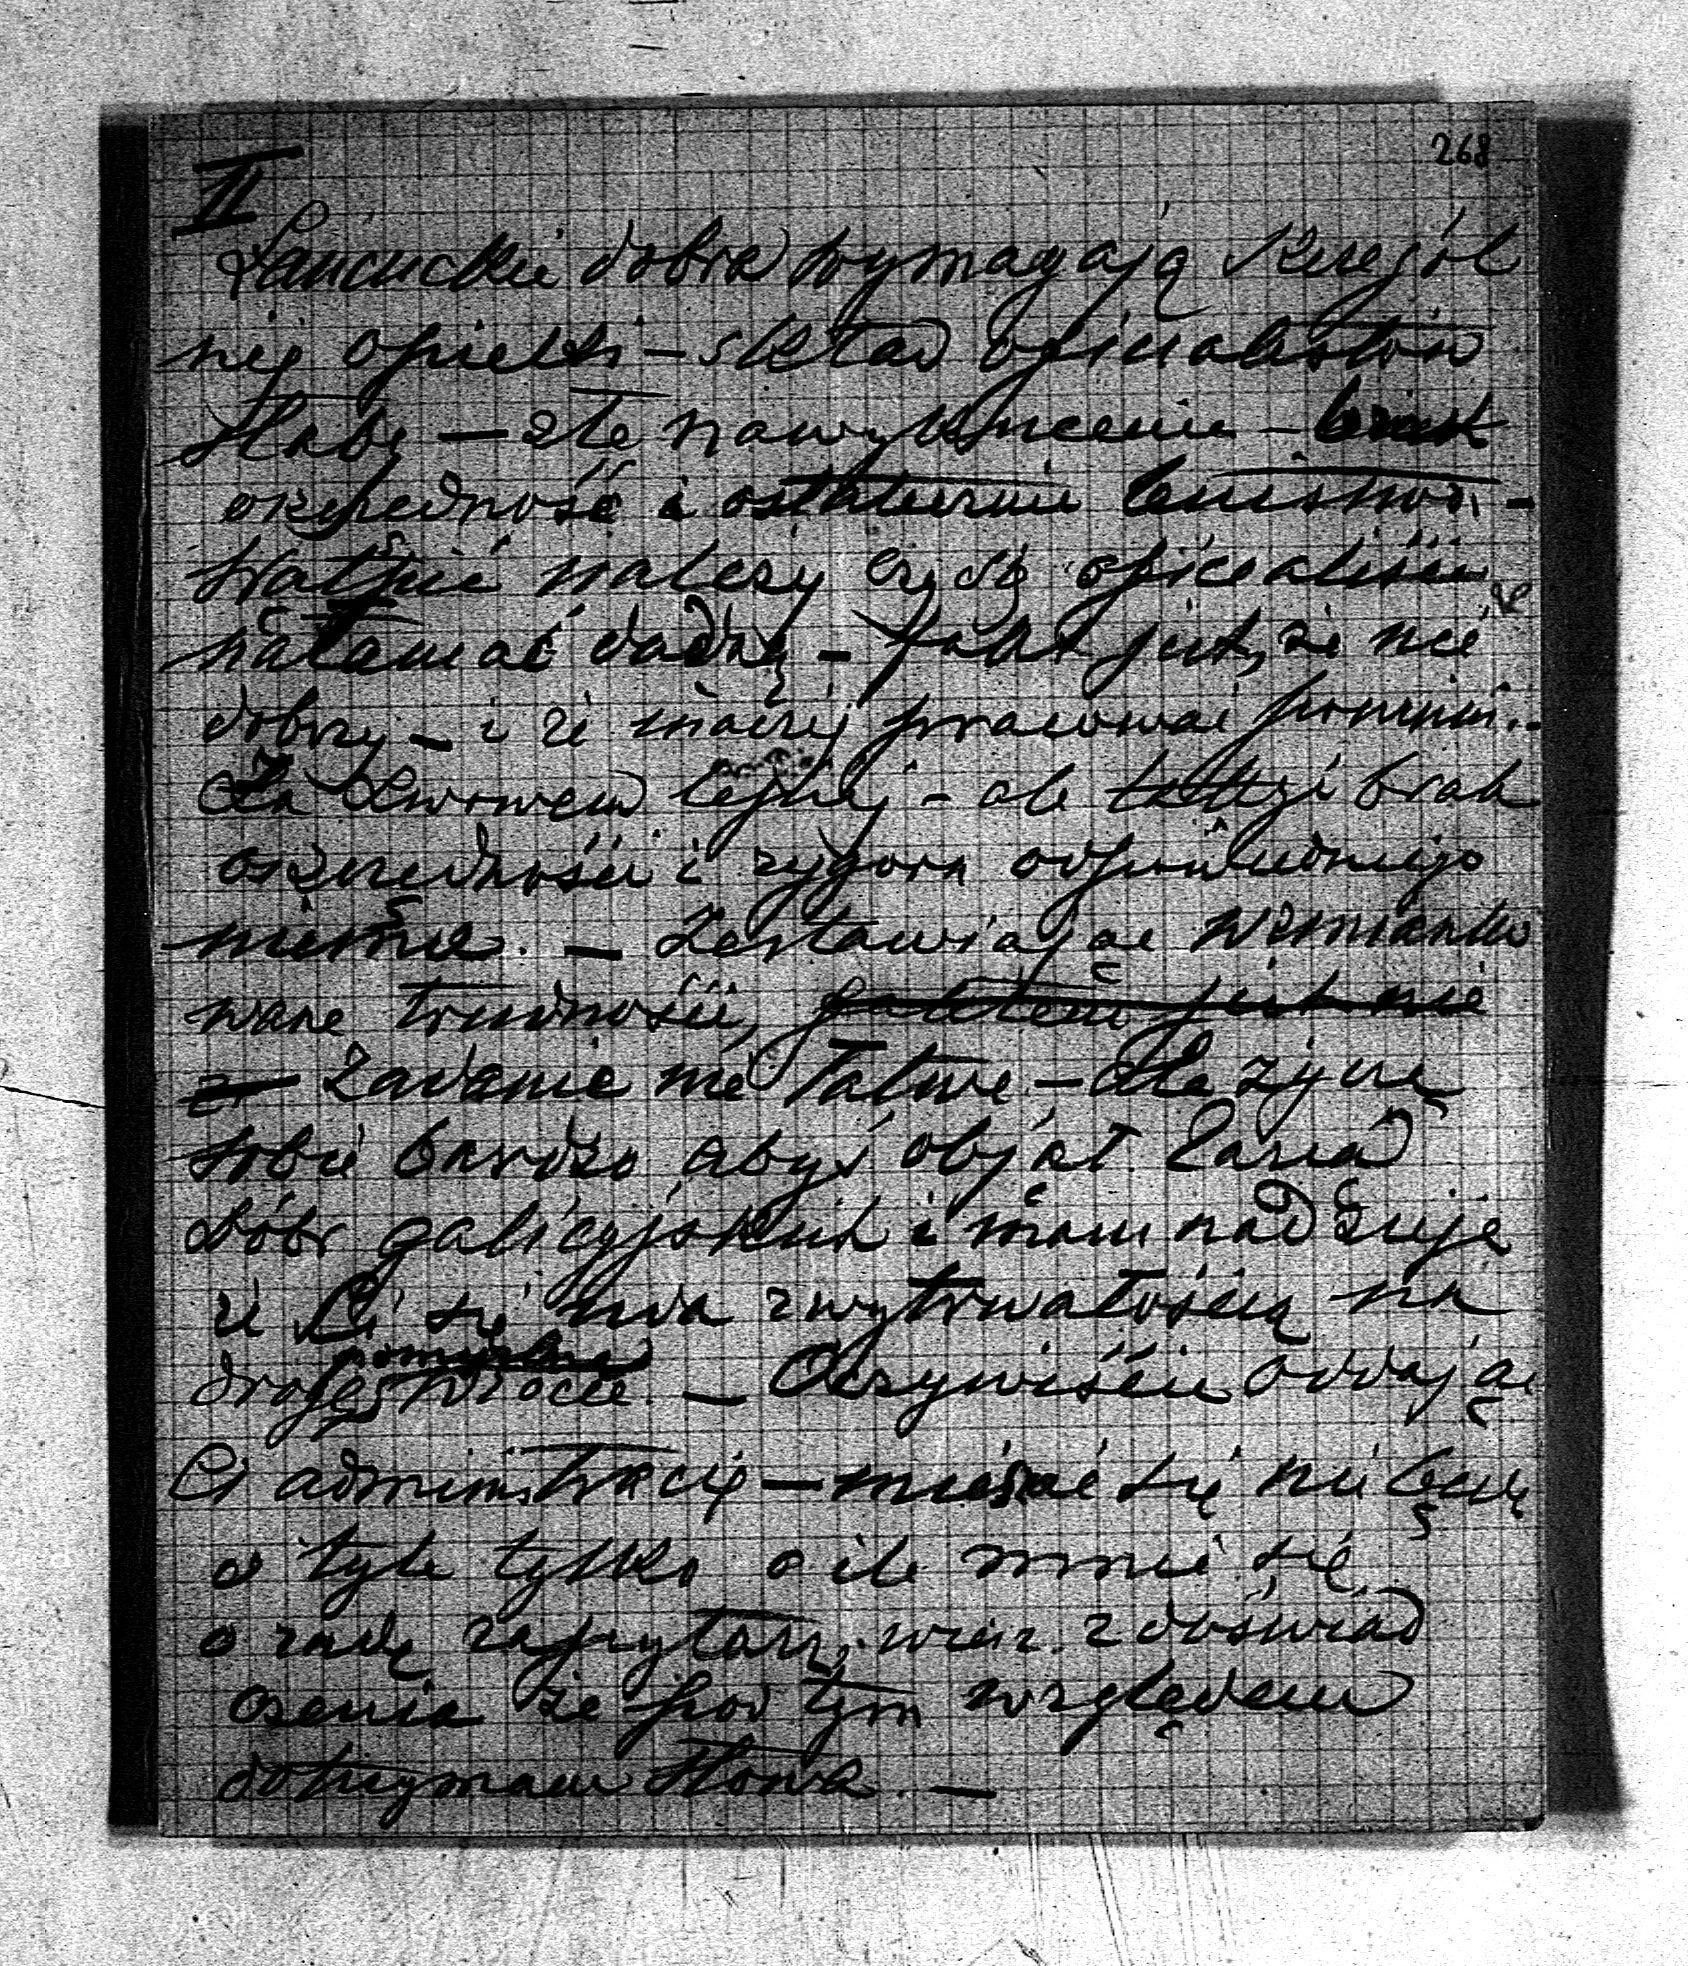 268
II
Łańcuckie dobra wymagają szczegól
niej opieki – skład oficialistów
słaby – złe nawyknienie – brak
oszczędności i ostatecznie lenistwo –
wątpić należy czy się oficialiści
nałamać dadzą – fakt jest, że nie
dobrzy – i że inaczej pracować powinni. –
Za Lwowem lepiej – ale także brak
oszczędności i rygoru odpowiedniego
niema. – Zestawiając wzmianko
wane trudności,
Zadanie nie łatwe – Ale życzę
sobie bardzo abyś objął Zarząd
Dóbr galicyjskich i mam nadzieję
że Ci się uda z wytrwałością na
drogę wrócić. – Oczywiście oddając
Ci administrację – mieszać się nie będę
o tyle tylko o ile mnie się
o radę zapytasz, wiesz z doświad
czenia że pod tym względem
dotrzymam słowa. –